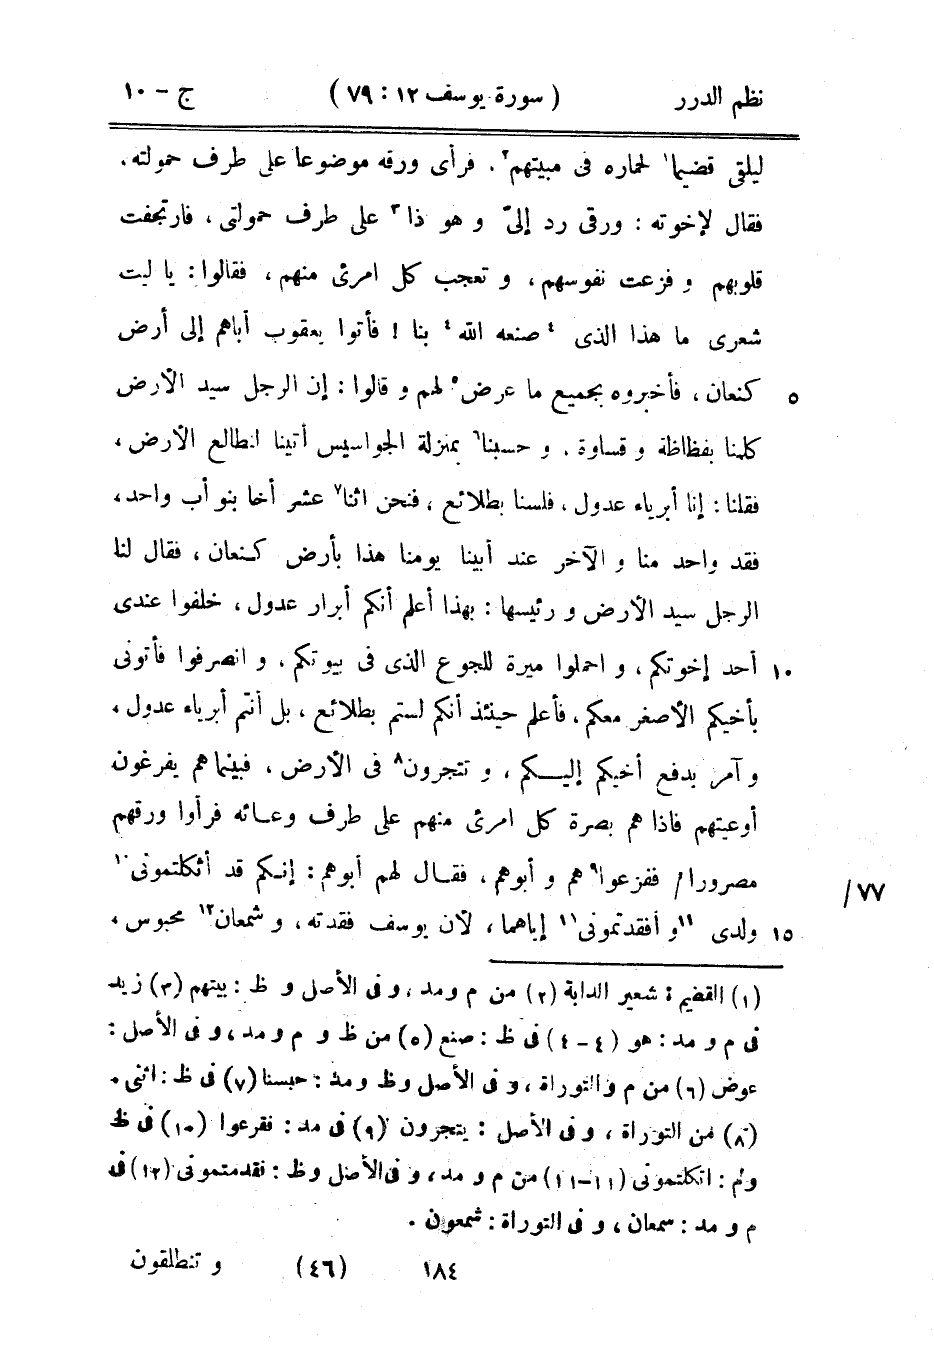 نظم الدرر ( سورة يوسف ١٢ : ٧٩ ) ج - ١٠
ليلقى قضيما١ لحماره فى مبيتهم٢ . فرأى ورقه موضوعا على طرف حمولته .
فقال لإخوته : ورقى رد إلىّ و هو ذا٣ على طرف حمولتى ، فارتجفت
قلوبهم و فزعت نفوسهم ، و تعجب كل امرئ منهم ، فقالوا : يا ليت
شعرى ما هذا الذى ٤ صنعه الله ٤ بنا ! فأتوا يعقوب أباهم إلى أرض
٥ كنعان ، فأخبروه بجميع ما عرض٥ لهم و قالوا : إن الرجل سيد الأرض
كلمنا بفظاظة و قساوة . و حسبنا٦ بمنزلة الجواسيس أتينا لنطالع الأرض ،
فقلنا : إنا أبرياء عدول ، فلسنا بطلائع ، فنحن اثنا٧ عشر أخا بنو أب واحد ،
فقد واحد منا و الآخر عند أبينا يومنا هذا بأرض كنعان ، فقال لنا
الرجل سيد الأرض و رئيسها : بهذا أعلم أنكم أبرار عدول ، خلفوا عندى
١٠ أحد إخوتكم ، و احملوا ميرة للجوع الذى فى بيوتكم ، و انصرفوا فأتونى
بأخيكم الأصغر معكم ، فأعلم حينئذ أنكم لستم بطلائع ، بل أنتم أبرياء عدول ،
و آمر بدفع أخيكم إليكم ، و تتجرون٨ فى الأرض ، فبينما هم يفرغون
أوعيتهم فاذا هم بصرة كل امرئ منهم على طرف وعائه فرأوا ورقهم
مصرورا / ففزعوا٩ هم و أبوهم ، فقال لهم أبوهم : إنكم قد أثكلتمونى١٠ ٧٧ /
١٥ ولدى ١١ و أفقدتمونى ١١ إياهما ، لأن يوسف فقدته ، و شمعان١٢ محبوس ،
(١) القضيم : شعير الدابة (٢) من م و مد ، و فى الأصل و ظ : بيتهم (٣) زيد
فى م و مد : هو (٤ - ٤) فى ظ : صنع (٥) من ظ و م و مد ، و فى الأصل :
عوض (٦) من م والتوراة ، و فى الأصل وظ ومد : حبسنا (٧) فى ظ : اثنى .
(٨) من التوراة ، و فى الأصل : يتجرون (٩) فى مد : فقرعوا (١٠) فى ظ
وم : اتكلتمونى (١١-١١) من م و مد ، و فى الأصل وظ : نقدمتمونى (١٢) فى
م و مد : سمعان ، و فى التوراة : شمعون .
١٨٤ (٤٦) و تنطلقون